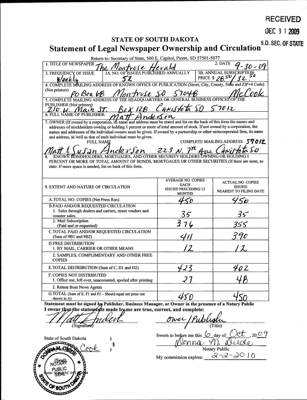 RECEIVED
DEC 31 2009
S.D. SEC. OF STATE
STATE OF SOUTH DAKOTA
Statement of Legal Newspaper Ownership and Circulation
Return to: Secretary of State, 500 E. Capitol, Pierre, SD 57501-5077
1. TITLE OF NEWSPAPER The Montrose Herald
2. DATE 9-30-09
3. FREQUENCY OF ISSUE Weekly
3A. NO. OF ISSUES PUBLISHED ANNUALLY 52
3B. ANNUAL SUBSCRIPTION PRICE
4. COMPLETE MAILING ADDRESS OF KNOWN OFFICE OF PUBLICATION (Street, City, County, State and ZIP+4 Code)
(Not printers) PO Box Montrose SD 57048 McCook
5. COMPLETE MAILING ADDRESS OF THE HEADQUARTERS OF GENERAL BUSINESS OFFICE OF THE
PUBLISHER (Not printers)
210 W. Main St. Box 128 Canistota SD 57012
6. FULL NAME OF PUBLISHER: Matt Anderson
7. OWNER (If owned by a corporation, its name and address must be stated and list on the back of this form the names and
addresses of stockholders owning or holding 1 percent or more of total amount of stock. If not owned by a corporation, the
names and addresses of the individual owners must be given. If owned by a partnership or other unincorporated firm, its name
and address, as well as that of each individual must be given.
FULL NAME
COMPLETE MAILING ADDRESS 57012
Matt & Susan Anderson 223 N. 7th Ave Canistota SD
8. KNOWN BONDHOLDERS, MORTGAGES, AND OTHER SECURITY HOLDERS OWNING OR HOLDING 1
PERCENT OR MORE OF TOTAL AMOUNT OF BONDS, MORTGAGES OR OTHER SECURITIES (If there are none, so
state. If more space is needed, list on back of this form.
9. EXTENT AND NATURE OF CIRCULATION
AVERAGE NO. COPIES EACH ISSUED PRECEDING 12 MONTHS
ACTUAL NO. COPIES ISSUED NEAREST TO FILING DATE
A. TOTAL NO. COPIES (Net Press Run) 450 450
B. PAID AND/OR REQUESTED CIRCULATION
1. Sales through dealers and carriers, street vendors and
counter sales. 35 35
2. Mail Subscription
(Paid and or requested) 376 355
C. TOTAL PAID AND/OR REQUESTED CIRCULATION
(Sum of 9B1 and 9B2) 411 390
D. FREE DISTRIBUTION
1. BY MAIL, CARRIER OR OTHER MEANS 12 12
2. SAMPLES, COMPLIMENTARY AND OTHER FREE
COPIES
E. TOTAL DISTRIBUTION (Sum of C, D1 and D2) 423 402
F. COPIES NOT DISTRIBUTED
1. Office use, left over, unaccounted, spoiled after printing 27 48
2. Return from News Agents
G. TOTAL (Sum of E, F1 and F2 - Should equal net press run
shown in A) 450 450
Statement must be signed by Publisher, Business Manager, or Owner in the presence of a Notary Public
I swear that the statements made by me are true, correct, and complete:
Matt Anderson owner/Publisher
(Signature) (Title)
State of South Dakota
Sworn to before me this 6 day of Oct. 2009
Notary Public
My commission expires: 2-2-2010
NOTARY
PUBLIC
SOUTH DAKOTA